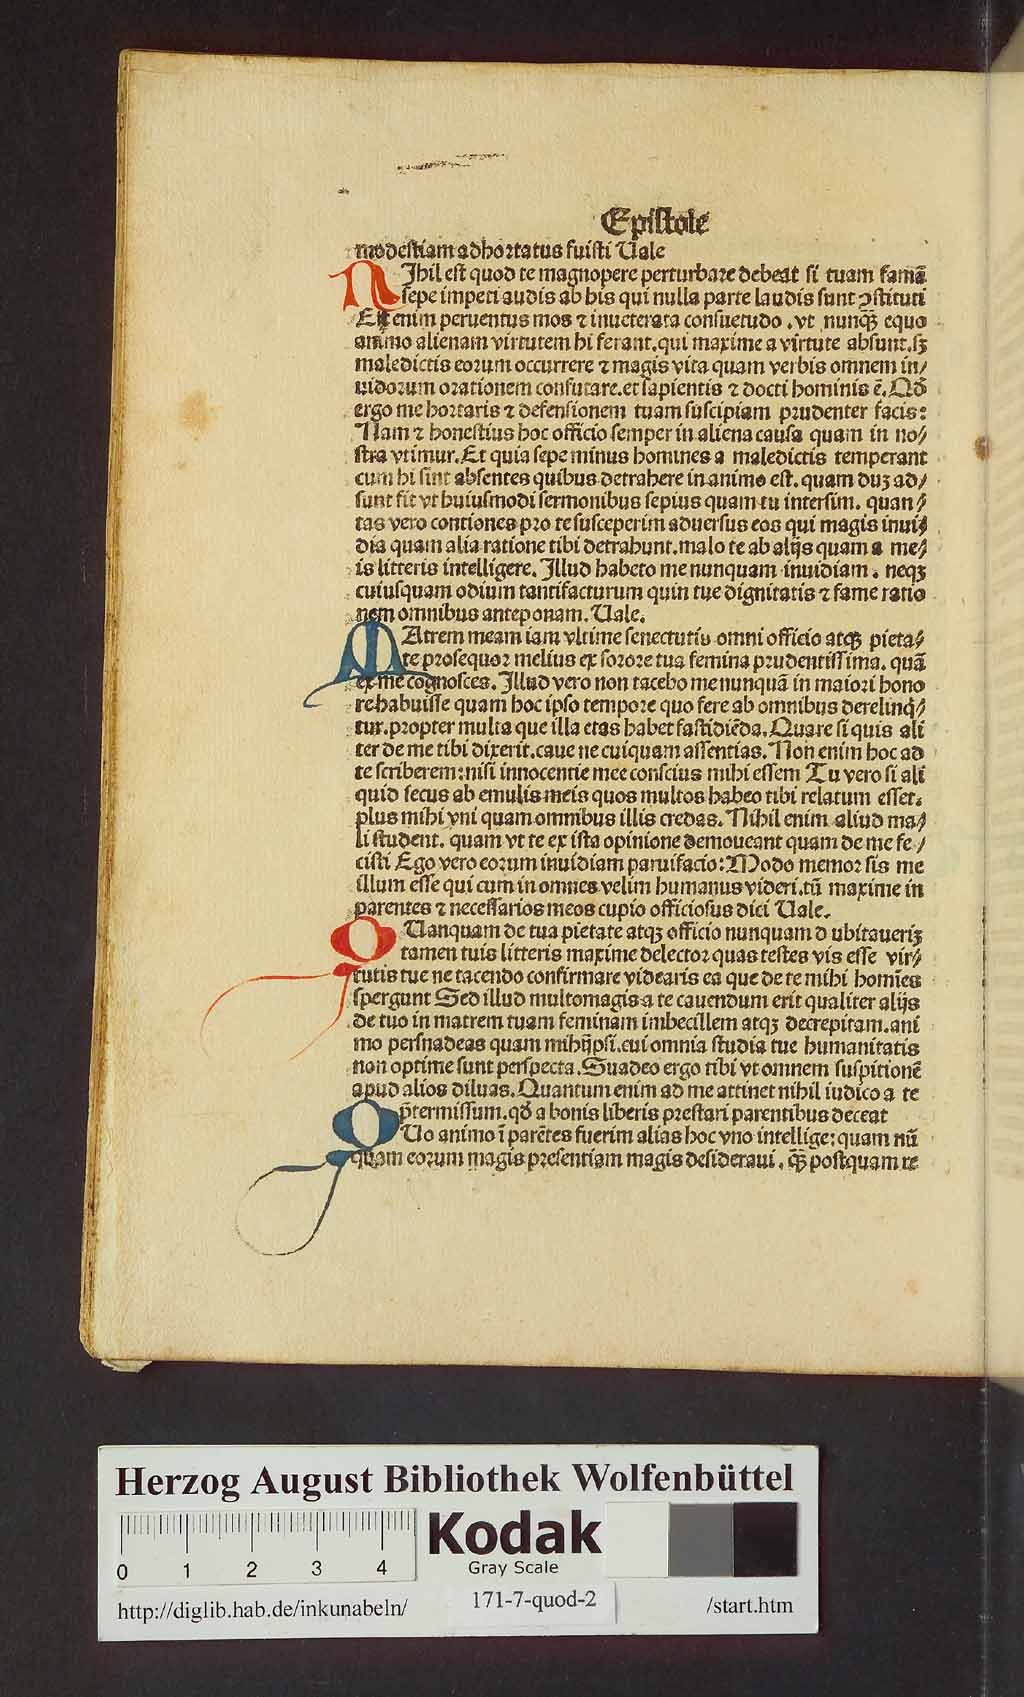 Epistole
modestiam adhortatus fuisti Uale
NIhil est quod te magnopere perturbare debeat si tuam famā
sepe impeti audis ab his qui nulla parte laudis sunt ↄstituti
Est enim peruentus mos ⁊ inueterata consuetudo . vt nunqꝫ̄ equo
animo alienam virtutem hi ferant. qui maxime a virtute absunt. sꝫ
maledictis eorum occurrere ⁊ magis vita quam verbis omnem in/
uidorum orationem confutare. et sapientis ⁊ docti hominis ē. Qđ
ergo me hortaris ⁊ defensionem tuam suscipiam prudenter facis:
Nam ⁊ honestius hoc officio semper in aliena causa quam in no/
stra vtimur. Et quia sepe minus homines a maledictis temperant
cum hi sint absentes quibus detrahere in animo est. quam duꝫ ad/
sunt fit vt huiusmodi sermonibus sepius quam tu intersim. quan/
tas vero contiones pro te susceperim aduersus eos qui magis inui/
dia quam alia ratione tibi detrahunt. malo te ab alijs quam a me/
is litteris intelligere. Illud habeto me nunquam inuidiam . neqꝫ
cuiusquam odium tanti facturum quin tue dignitatis ⁊ fame ratio
nem omnibus anteponam. Uale.
MAtrem meam iam vltime senectutis omni officio atqꝫ pieta/
te prosequor melius ex sorore tua femina prudentissima. quā
ex me cognosces. Illud vero non tacebo me nunquā in maiori hono
re habuisse quam hoc ipso tempore quo fere ab omnibus derelinq̇/
tur. propter multa que illa etas habet fastidiēda. Quare si quis ali
ter de me tibi dixerit. caue ne cuiquam assentias. Non enim hoc ad
te scriberem: nisi innocentie mee conscius mihi essem Tu vero si ali
quid secus ab emulis meis quos multos habeo tibi relatum esset.
plus mihi vni quam omnibus illis credas. Nihil enim aliud ma/
li student. quam vt te ex ista opinione demoueant quam de me fe/
cisti Ego vero eorum inuidiam paruifacio: Modo memor sis me
illum esse qui cum in omnes velim humanus videri. tū maxime in
parentes ⁊ necessarios meos cupio officiosus dici Uale.
QUanquam de tua pietate atqꝫ officio nunquam d ubitauerīꝫ
tamen tuis litteris maxime delector quas testes vis esse vir/
tutis tue ne tacendo confirmare videaris ea que de te mihi homīes
spergunt Sed illud multomagis a te cauendum erit qualiter alijs
de tuo in matrem tuam feminam imbecillem atqꝫ decrepitam. ani
mo persnadeas quam mihijpsi. cui omnia studia tue humanitatis
non optime sunt perspecta. Suadeo ergo tibi vt omnem suspitionē
apud alios diluas. Quantum enim ad me attinet nihil iudico a te
p̄termissum. qđ a bonis liberis prestari parentibus deceat
QUo animo ī parētes fuerim alias hoc vno intellige: quam nū
quam eorum magis presentiam magis desideraui . qꝫ̄ postquam re
Herzog August Bibliothek Wolfenbüttel
0 1 2 3 4
Kodak
Gray Scale
171-7-quod-2
http://diglib.hab.de/inkunabeln/
/start.htm